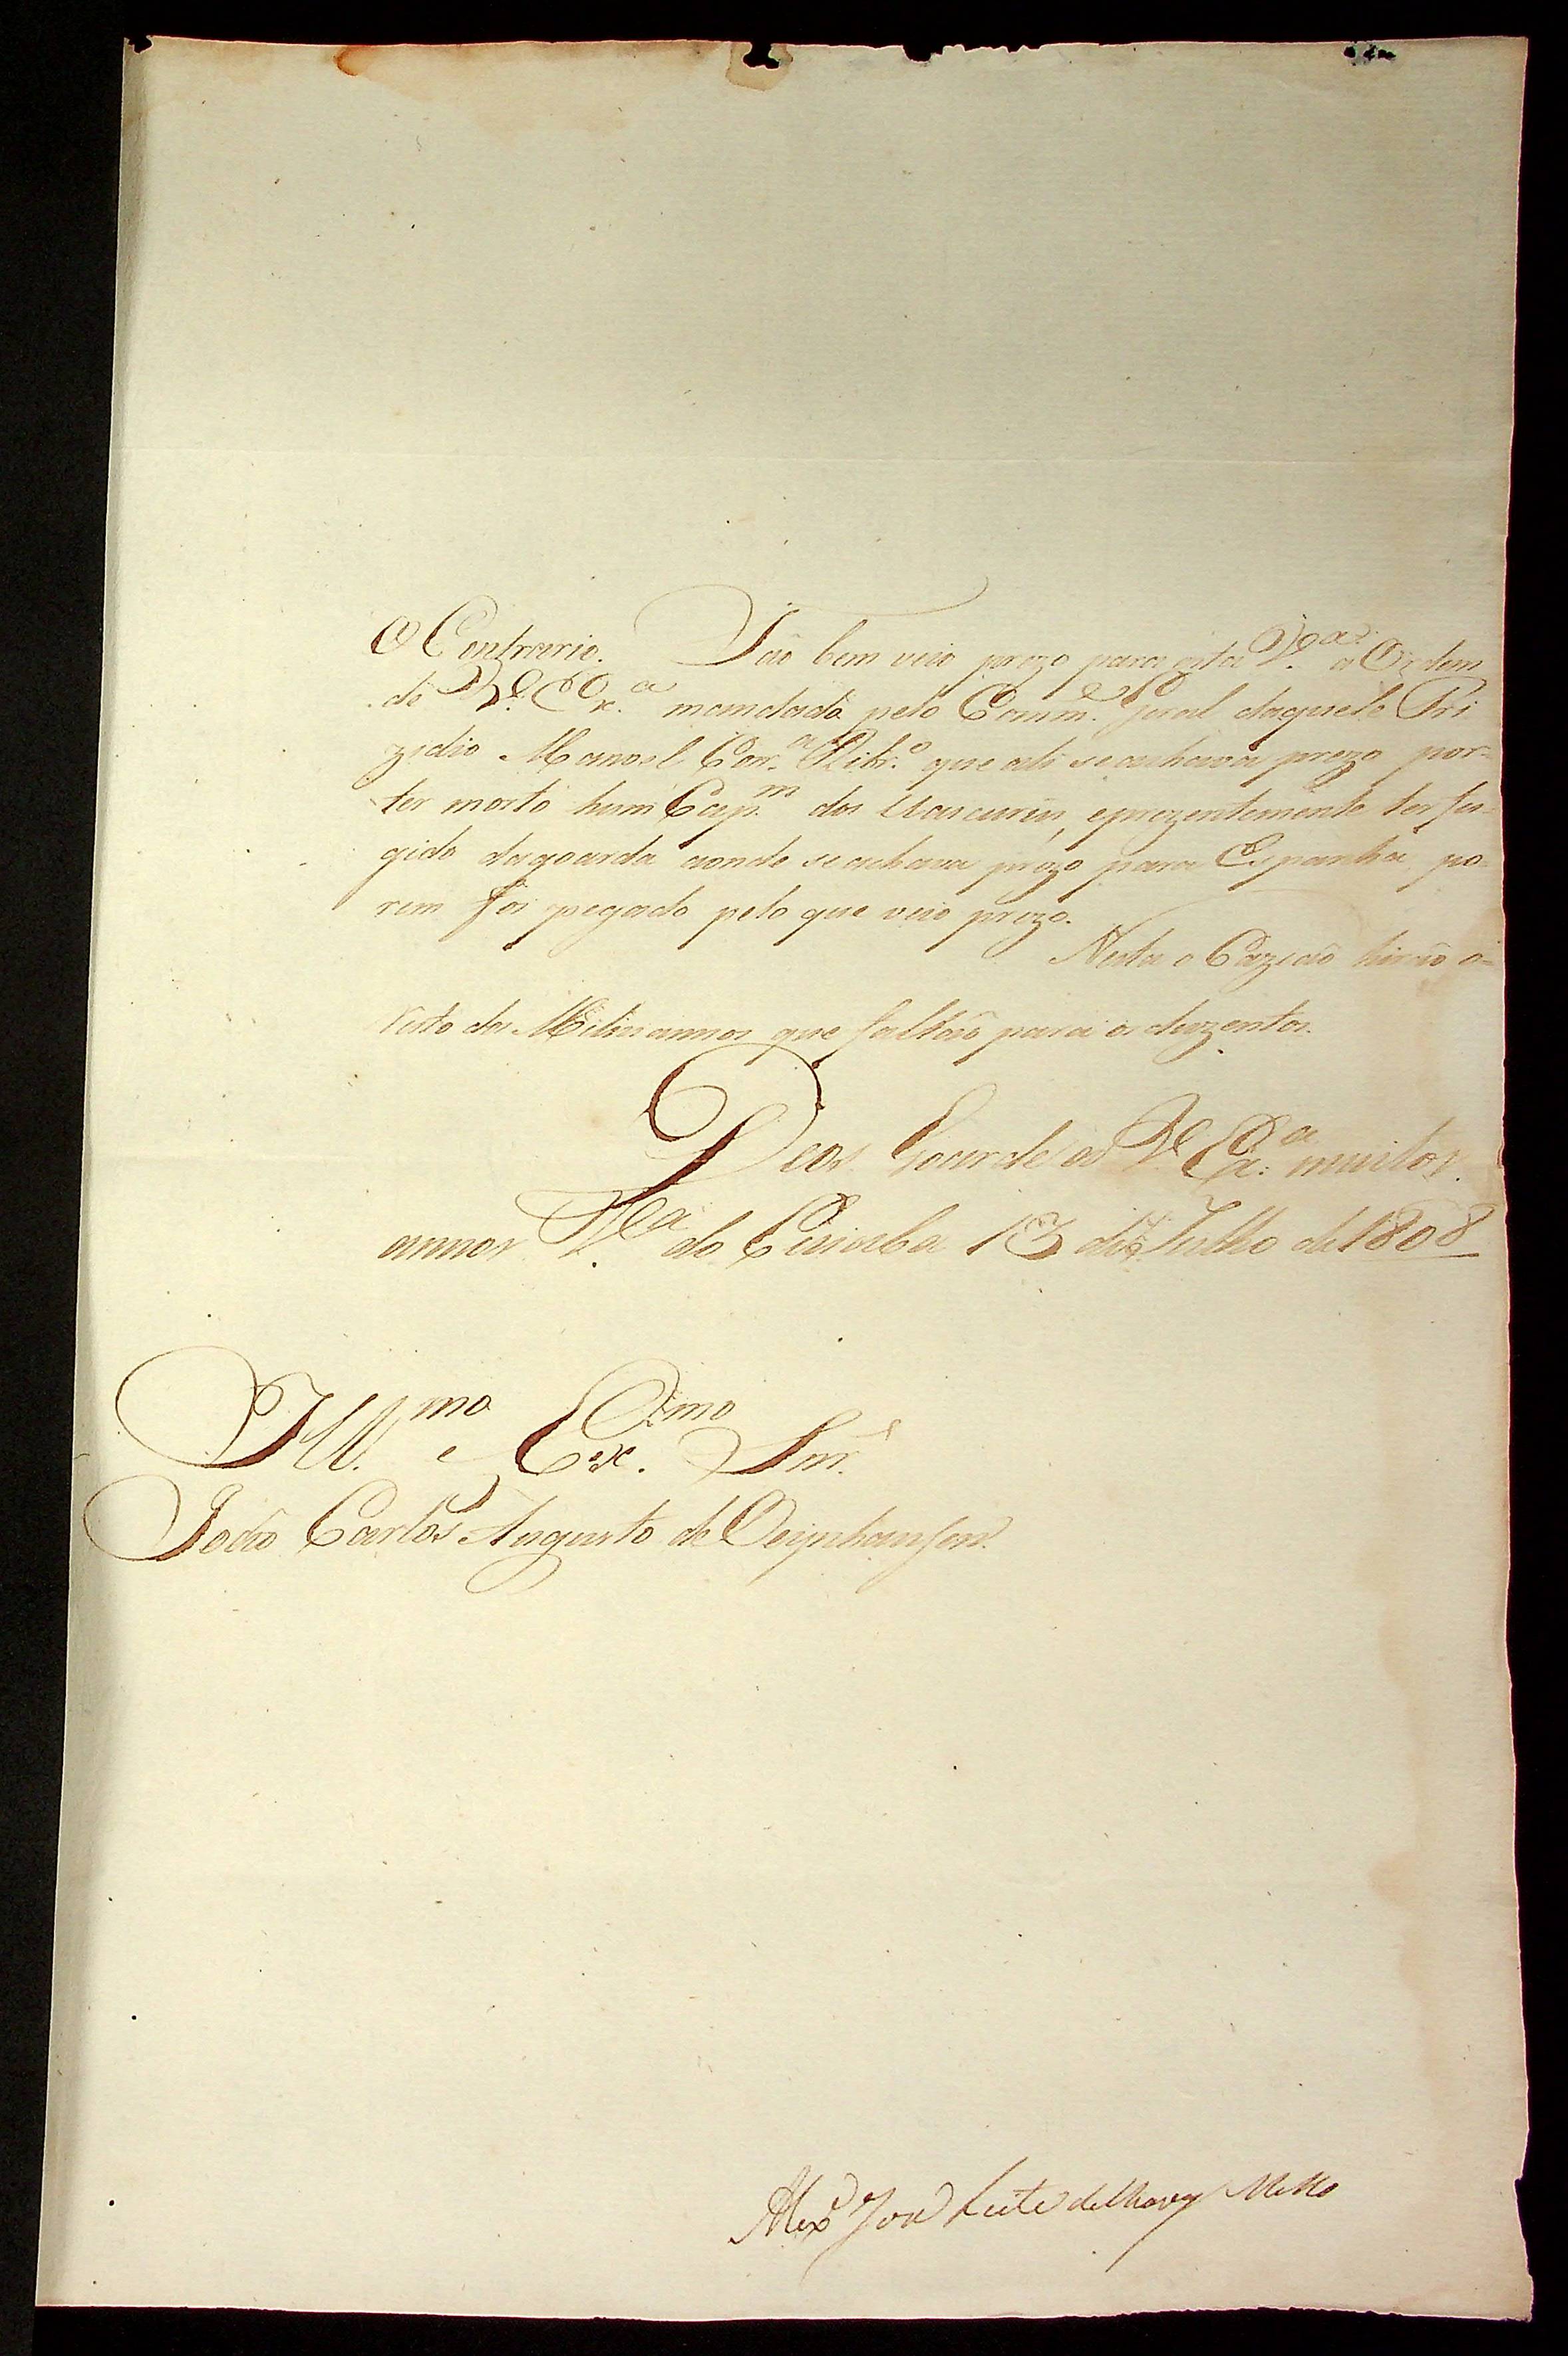 O Contrario. Tão bem veio prezo para esta V.ª a Ordem
de V. Ex.ª mandado pelo Comm.e geral daquele Pri
zidio Manoel Cor.ª Rib.º que ali seachava prezo por
ter morto hum Cap.m dos Uaicurus, eprezentemente ter fu-
gido dagoarda aonde seachava prezo para Espanha, po-
rem foi pegado pelo que veio prezo.
Nesta o Cazião hirão o-
resto dos Miliciannos que faltão para os duzentos.
Deos Goarde a V. Ex.ª muitos
annos V.ª do Cuiaba 13 de Julho de 1808
Ill.mo e Ex.mo Snr.
João Carlos Augusto de Oeynhausen.
Alex.e Jozé Leite de Chaves Mello